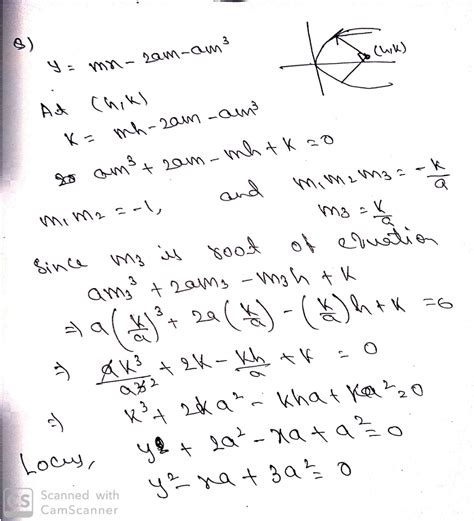 8)
y = mx - 2am - am³
(h,k)
At (h,k)
k = mh - 2am - am³
am³ + 2am - mh + k = 0
m₁m₂ = -1, and m₁m₂m₃ = -k/a
m₃ = k/a
Since m₃ is root of equation
am₃³ + 2am₃ - m₃h + k
⇒ a(k/a)³ + 2a(k/a) - (k/a)h + k = 0
⇒ ak³/a³² + 2k - kh/a + k = 0
⇒ k³ + 2ka² - kha + ka² = 0
Locus, y² + 2a² - xa + a² = 0
y² - xa + 3a² = 0
CS Scanned with
CamScanner